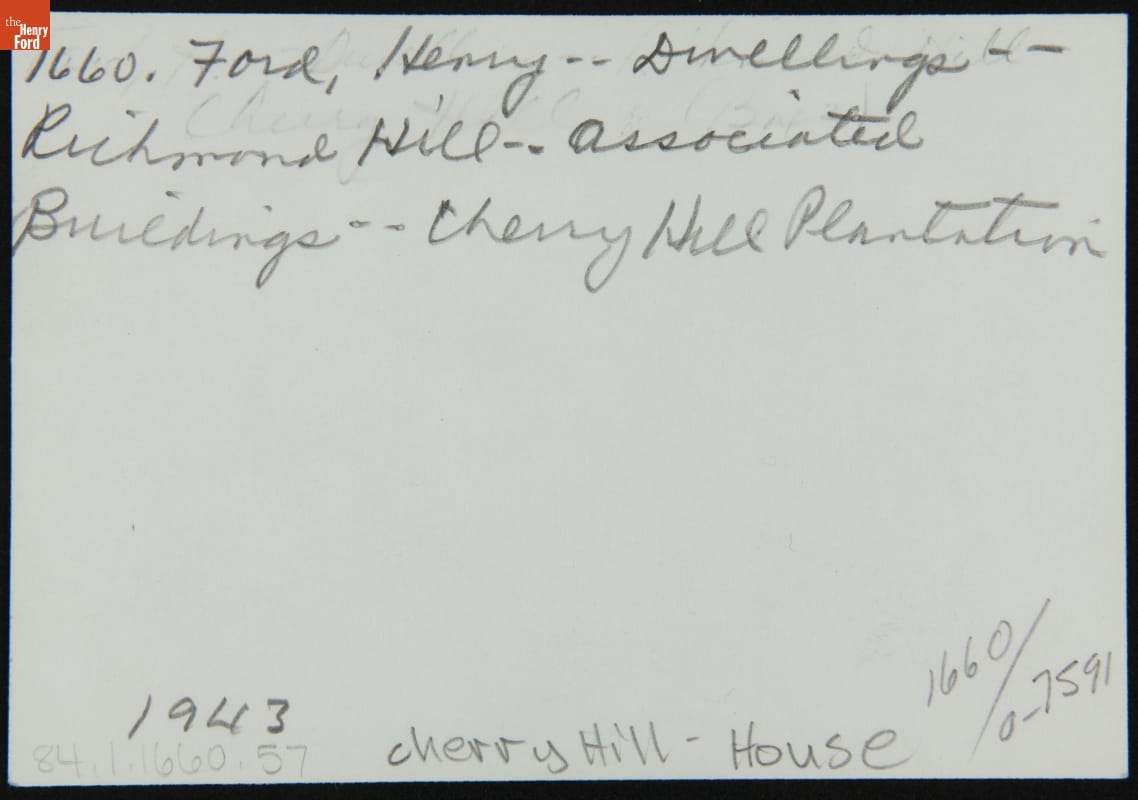 the
Henry
Ford
1660. Ford, Henry -- Dwellings --
Richmond Hill -- Associated
Buildings -- Cherry Hill Plantation
1660/
0-7591
1943
cherry Hill - House
84.1.1660.57